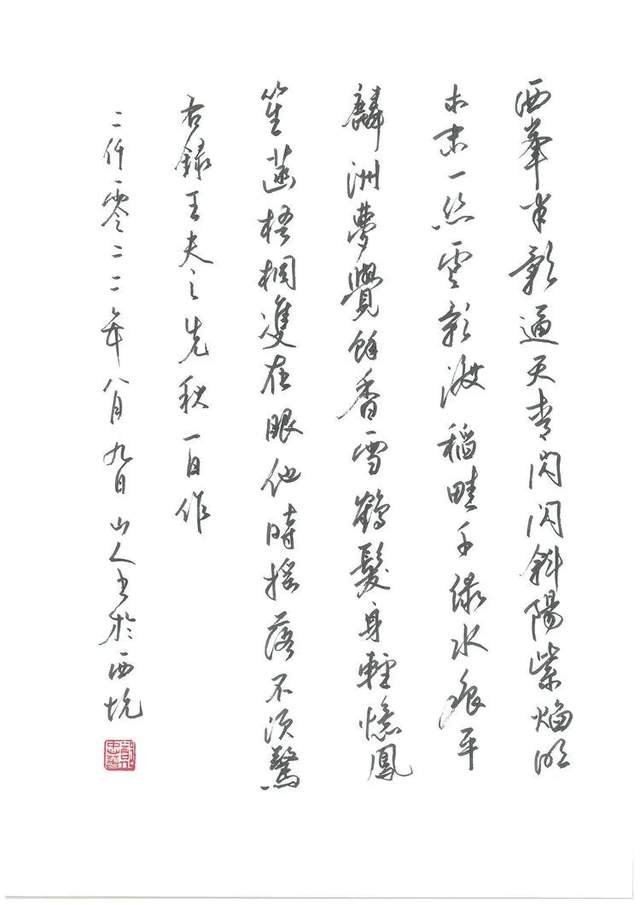 西峯半影通天青閃閃斜陽紫焰明
木末一丝雲影渡稻畦千綠水痕平
麟洲夢覺餘香雪鶴髮身輕憶鳳
笙菡梧桐雙在眼他時搖落不須驚
右錄王夫之先秋一日作
二仟零二二年八月九日山人書於西坑